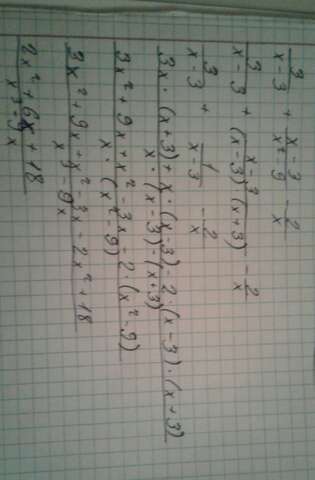 3/(x-3) + (x-3)/(x²-9) - 2/x
3/(x-3) + (x-3)/((x-3)(x+3)) - 2/x
3/(x-3) + 1/(x-3) - 2/x
3x·(x+3)+x·(x-3)-2·(x-3)·(x+3)
x·(x-3)·(x+3)
3x²+9x+x²-3x-2·(x²-9)
x·(x²-9)
3x²+9x+x²-3x-2x²+18
x³-9x
2x²+6x+18
x³-9x